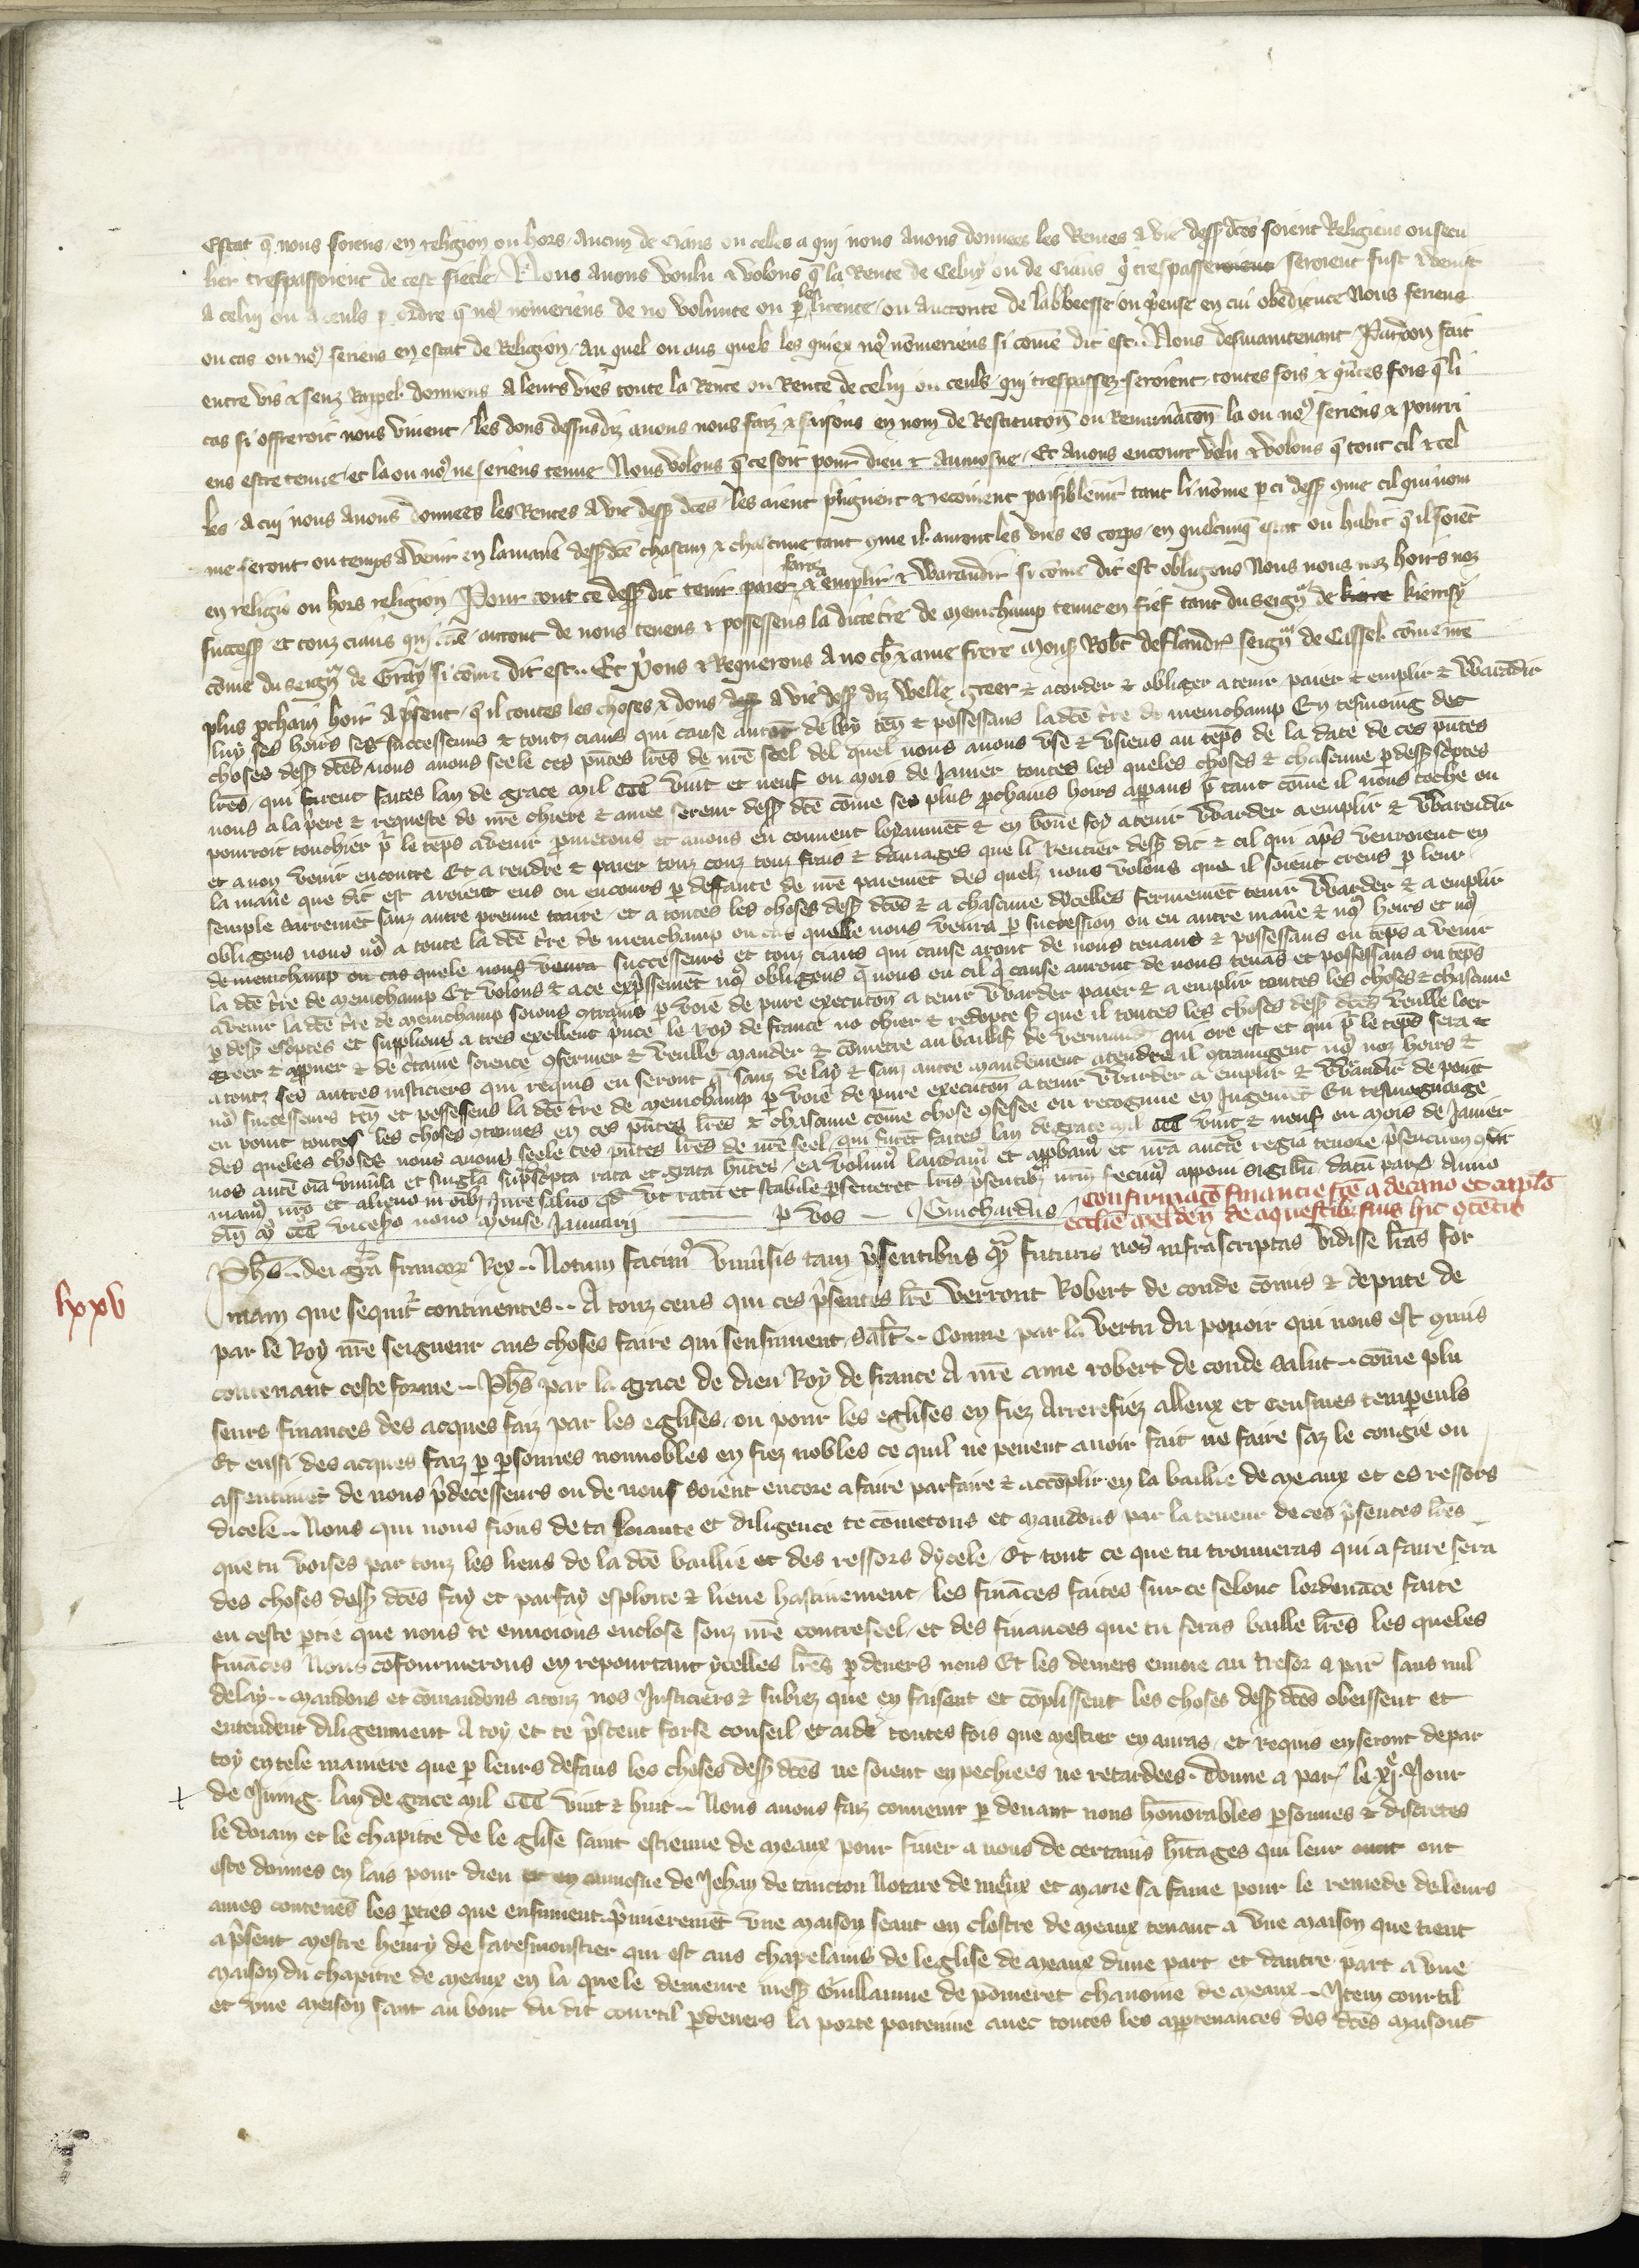 Estat q̄ nous soiens en religion ou hors aucun de ciaus ou celes a qui nous auons donnees les Rentes a vie dess dc̄es soient Religieus ou secu
lier trespassoient de cest siecle Nous auons voulu & volons q̄ la Rente de Celuy ou de Ciaus q̓ trespasse seroient fust & venist
a celui ou a ceuls p ordre q̄ no9 nōmeriens de no volunte ou p le licence ou auctorite de labbeesse ou p̓euse en cui obedience Nous seriens
ou cas ou no9 seriens en estat de Religion au quel ou aus quels les quiex no9 nōmeriens si cōme dit est Nous desmaintenant Par don fait
entre vis & senz Rappel donnons a leurs vies toute la Rente ou Rente de celui ou ceuls qui trespassez seroient toutes fois & q̓ntes fois q̄ li
cas si offreroit nous viuent les dons dessusdiz auons nous faiz & faisons en nom de Restitutoñ ou Remun̓atoñ la ou no9 seriens & pourri
ens estre tenue et la ou no9 ne seriens tenue Nous volons q̄ ce soit pour dieu & aumosne Et auons encour volu & volons q̄ tout cil & cel
les a cui nous auons donnees les Rentes a vie dess dc̄es les aient p̓ngnent & recoiuent paisiblem̄t tant li nōme p ci dess 9me cil qui nom
me seront ou temps a venir en la man̓e dess dc̄e chascun & chascune tant 9me il auront les vies es corps en quelcunq̄ estat ou habit q̄ il soiēt
en religiō ou hors religion Pour tout ce dess dit tenir paier faire & aemplir & warandir si cōme dit est obligons Nous nous noz hoirs noz
success et touz ciaus qui cāe auront de nous tenens & possessens la dicte tr̄e de menchamp tenue en fief tant du seign̓ de kierrisy
cōme du seign̓ de Gray si cōme dit est Et p̓ons & Requerons a no ch̓ & ame frere mons Rob̓t de Flandr̓ seign̓ de Cassel cōme n̄re
plus p̓chain hoir a p̓sent q̄ il toutes les choses & dons a vie dess diz welle greer & acorder & obligier a tenir paier & emplir & warādir
luy ses hoirs ses successeurs & touz ciaus qui cause auront de luy ten̄ & possessans la dc̄e tr̄e de menchamp En tesmoing des
choses dess dc̄es nous auons seele ces pn̄tes lr̄es de nr̄e seel del quel nous auons vse & vsiens au tēps de la date de ces pn̄tes
lr̄es qui furent faites lan de grace mil ccc vint et neuf ou mois de Januier toutes les queles choses & chascune p dess sc̓ptes
nous a la p̓ere & requeste de nr̄e chiere & amee sereur dess dc̄e cōme ses plus p̓chains hoirs apparans p̓ tant cōme il nous toche ou
pourroit touchier p̓ le tēps a venir p̓metons et auons en conuent loyaument & en bōne foy a tenir warder aemplir & warendir
et a non venir encontre Et a rendre & paier touz couz touz frais & damages que li Rentier dess dit & cil qui ap̓s venroient en
la man̓e que dit est aroient eus ou encours p deffaute de nr̄e paiemēt des quels nous volons que il soient creus p leur
semple sairemēt sanz autre preuue traire et a toutes les choses dess dc̄es & a chascune dicelles fermemēt tenir warder & aemplir
obligons nous no9 a toute la dc̄e tr̄e de menchamp ou cas quelle nous venra p succession ou en autre man̓e & no9 hoirs et no9
de menchamp ou cas quele nous venra successeurs et touz ciaus qui cause aront de nous tenans & possessans ou tēps a venir
la dc̄e tr̄e de menchamp Et volons & a ce exp̓ssemēt no9 obligons q̄ nous ou cil q̓ cause auront de nous tenās et possessans ou tēps
auenir la dc̄e tr̄e de menchamp soions 9trains p voie de pure executoñ a tenir warder paier & a emplir toutes les choses & chascune
p dess esc̓ptes et supplions a tres excellent p̓nce le Roy de France no chier & redopte s̓ que il toutes les choses dess dc̄es veulle loer
greer & app̓uer & de c̓taine science 9fermer & veulle mander & cōmetre au baillif de vermand̓ qui ore est et qui p̓ le tēps sera &
a touz ses autres iusticiers qui requis en seront q̄ sanz delay & sanz autre mandement atendre il 9traingent no9 noz hoirs &
no9 successeurs ten̄ et possessens la dc̄e tr̄e de menchamp p voie de pure executoñ a tenir warder aemplir & warandir de point
en point toutes les choses 9tenues en ces pn̄tes lr̄es & chascune cōme chose 9fessee ou recognue en Jugemēt En tesmognaige
des queles choses nous auons seele ces pn̄tes lr̄es de nr̄e seel qui furēt faites lan de grace mil ccc vint & neuf ou mois de Januier
nos autē oīa vniūsa et singl̄a sup̓sc̓pta rata et grata hn̄tes ea volum9 laudam9 et app̓bam9 et nr̄a auctē regia tenore p̓sencium 9fir
mam9 nr̄o et alieno in oībȝ iure saluo qd̄ vt ratū et stabile p̓seueret lr̄is p̓sentibȝ nr̄m fecim9 apponi sigillū datū par̓ Anno
dn̄i mo ccc vicesiō nono mense Januarij p vos Guichardus
Confirmacō financie fc̄e a decano et capl̄o
ecclīe melden̄ de aquestibȝ suis hic 9tētis
lxxv
Ph̄s dei gr̄a francoꝝ Rex Notum facim9 vniūsis tam p̓sentibus qȝ futuris nos infrascriptas vidisse lr̄as for
mam que sequit̓ continentes A touz ceus qui ces p̓sentes lr̄e verront Robert de conde cōmis & depute de
par le Roy nr̄e seigneur aus choses faire qui sensuiuent sal̄t Comme par la vertu du pouoir qui nous est 9mis
contenant ceste forme Ph̄s par la grace de dieu Roy de france A nr̄e ame robert de conde salut cōme plu
seurs finances des acques faiz par les eglises ou pour les eglises en fiez Arrerefiez alleux et censiues temporeuls
Et eussi des acques faiz p p̓sonnes nonnobles en fiez nobles ce quil ne peuent auoir fait ne faire saz le congie ou
assentimēt de nous p̓decesseurs ou de nous soient encore a faire parfaire & accōplir en la baillie de meaux et es ressors
dicele Nous qui nous fions de ta loiaute et diligence te cōmetons et mandons par la teneur de ces p̓sentes lr̄es
que tu voises par touz les lieus de la dc̄e baillie et des ressors dycele Et tout ce que tu trouueras qui a faire sera
des choses dess dc̄es fay et parfay esploite & lieue hastiuement les fināces faites sur ce selonc lordenāce faite
en ceste p̓tie que nous te enuoions enclose souz nr̄e contreseel et des finances que tu feras baille lr̄es les queles
fināces Nous cōfourmerons en repourtant ycelles lr̄es p deuers nous Et les deniers enuoie au tresor a par̓ sans nul
delay mandons et cōmandons a touz nos Justiciers & subiez que en faisant et cōplissent les choses dess dc̄es obeissent et
entendent diligemment A toy et te p̓stent forse conseil et aide toutes fois que mestier en auras et requis en seront de par
toy en tele maniere que p leurs defaus les choses dess dc̄es ne soient enpechiees ne retardees donne a par̓ le xje Jour
de Juing lan de grace mil ccc vint & huit Nous auons faiz conuenir p deuant nous honn̄orables p̓sonnes & discretes
le doiam et le chapitre de le glise saint estienne de meaux pour finer a nous de certains h̓itages qui leur ont
este donnes en lais pour dieu et en aumosne de Jehan de tancton Notaire de meaux et marie sa fame pour le remede de leurs
ames contenēs les p̓ties que ensuiuent p̓mieremēt vne maison seant en clostre de meaux tenant a vne maison que tient
a p̓sent mestre henry de faresmoustier qui est aus chapelains de leglise de meaux dune part et dautre part a vne
maison du chapitre de meaux en la quele demeure mess Guillaume de pōmeret chanoine de meaux Item courtil
et vne meison sant au bout du dit courtil p̓deuers la porte poitenine auec toutes les app̓tenances des dc̄es maisons